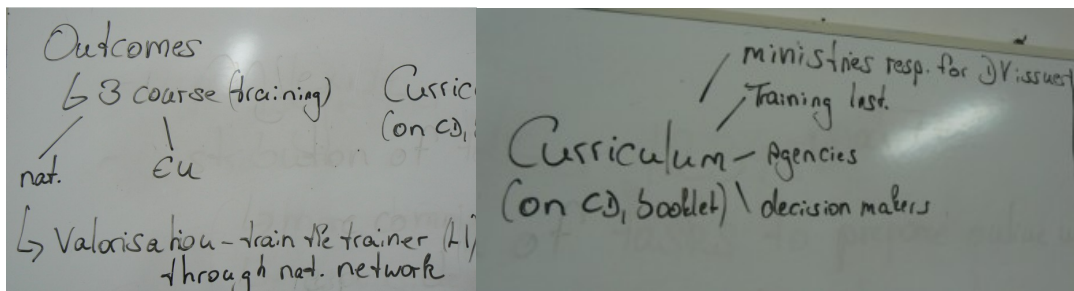 Outcomes
↳ 3 course (training)
nat. EU
↳ Valorisation - train the trainer
through nat. network
Curric
(on CD,
ministries resp. for DV issues
Training Inst.
Curriculum - Agencies
(on CD, booklet) \ decision makers